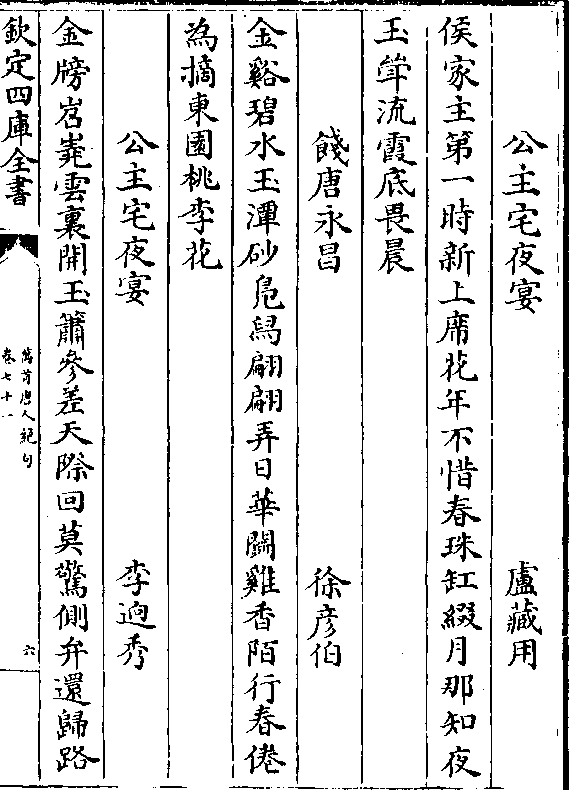 公主宅夜宴 盧藏用
侯家主第一時新上席花年不惜春珠缸綴月那知夜
玉斝流霞底畏晨
餞唐永昌 徐彦伯
金谿碧水玉潭砂鳬舄翩翩弄日華鬭雞香陌行春倦
為摘東園桃李花
公主宅夜宴 李迥秀
金牓岧嶤雲裏開玉簫參差天際回莫驚側弁還歸路
欽定四庫全書
萬首唐人絶句
卷七十一
六